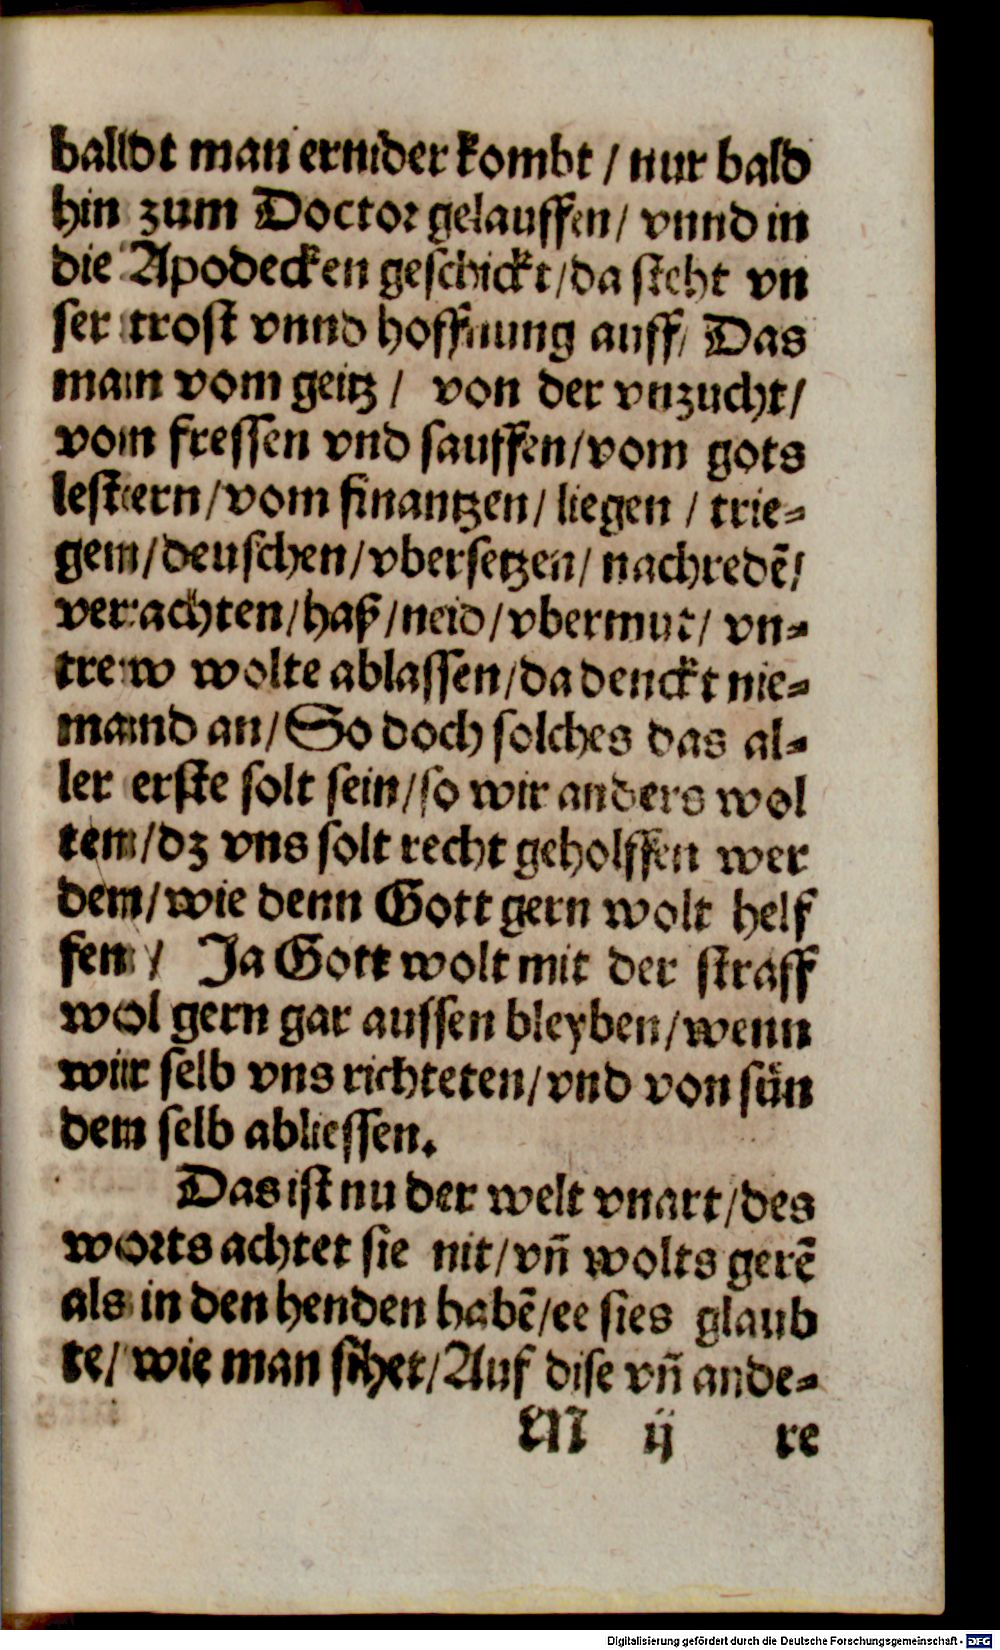 balldt man ernider kombt / nur bald
hin zum Doctor gelauffen / vnnd in
die Apodecken geschickt / da steht vn
ser trost vnnd hoffnung auff / Das
man vom geitz / von der vnzucht /
vom fressen vnd sauffen / vom gots
lestern / vom finantzen / liegen / trie-
gem / deuschen / vbersetzen / nachredē /
verachten / haß / neid / vbermut / vn-
trew wolte ablassen / da denckt nie-
mand an / So doch solches das al-
ler erste solt sein / so wir anders wol
ten / dz vns solt recht geholffen wer
den / wie denn Gott gern wolt helf
fen / Ja Gott wolt mit der straff
wol gern gar aussen bleyben / wenn
wir selb vns richteten / vnd von sün
den selb abliessen.
Das ist nu der welt vnart / des
worts achtet sie nit / vñ wolts gerē
als in den henden habē / ee sies glaub
te / wie man sihet / Auf dise vñ ande-
M ij re
Digitalisierung gefördert durch die Deutsche Forschungsgemeinschaft - DFG